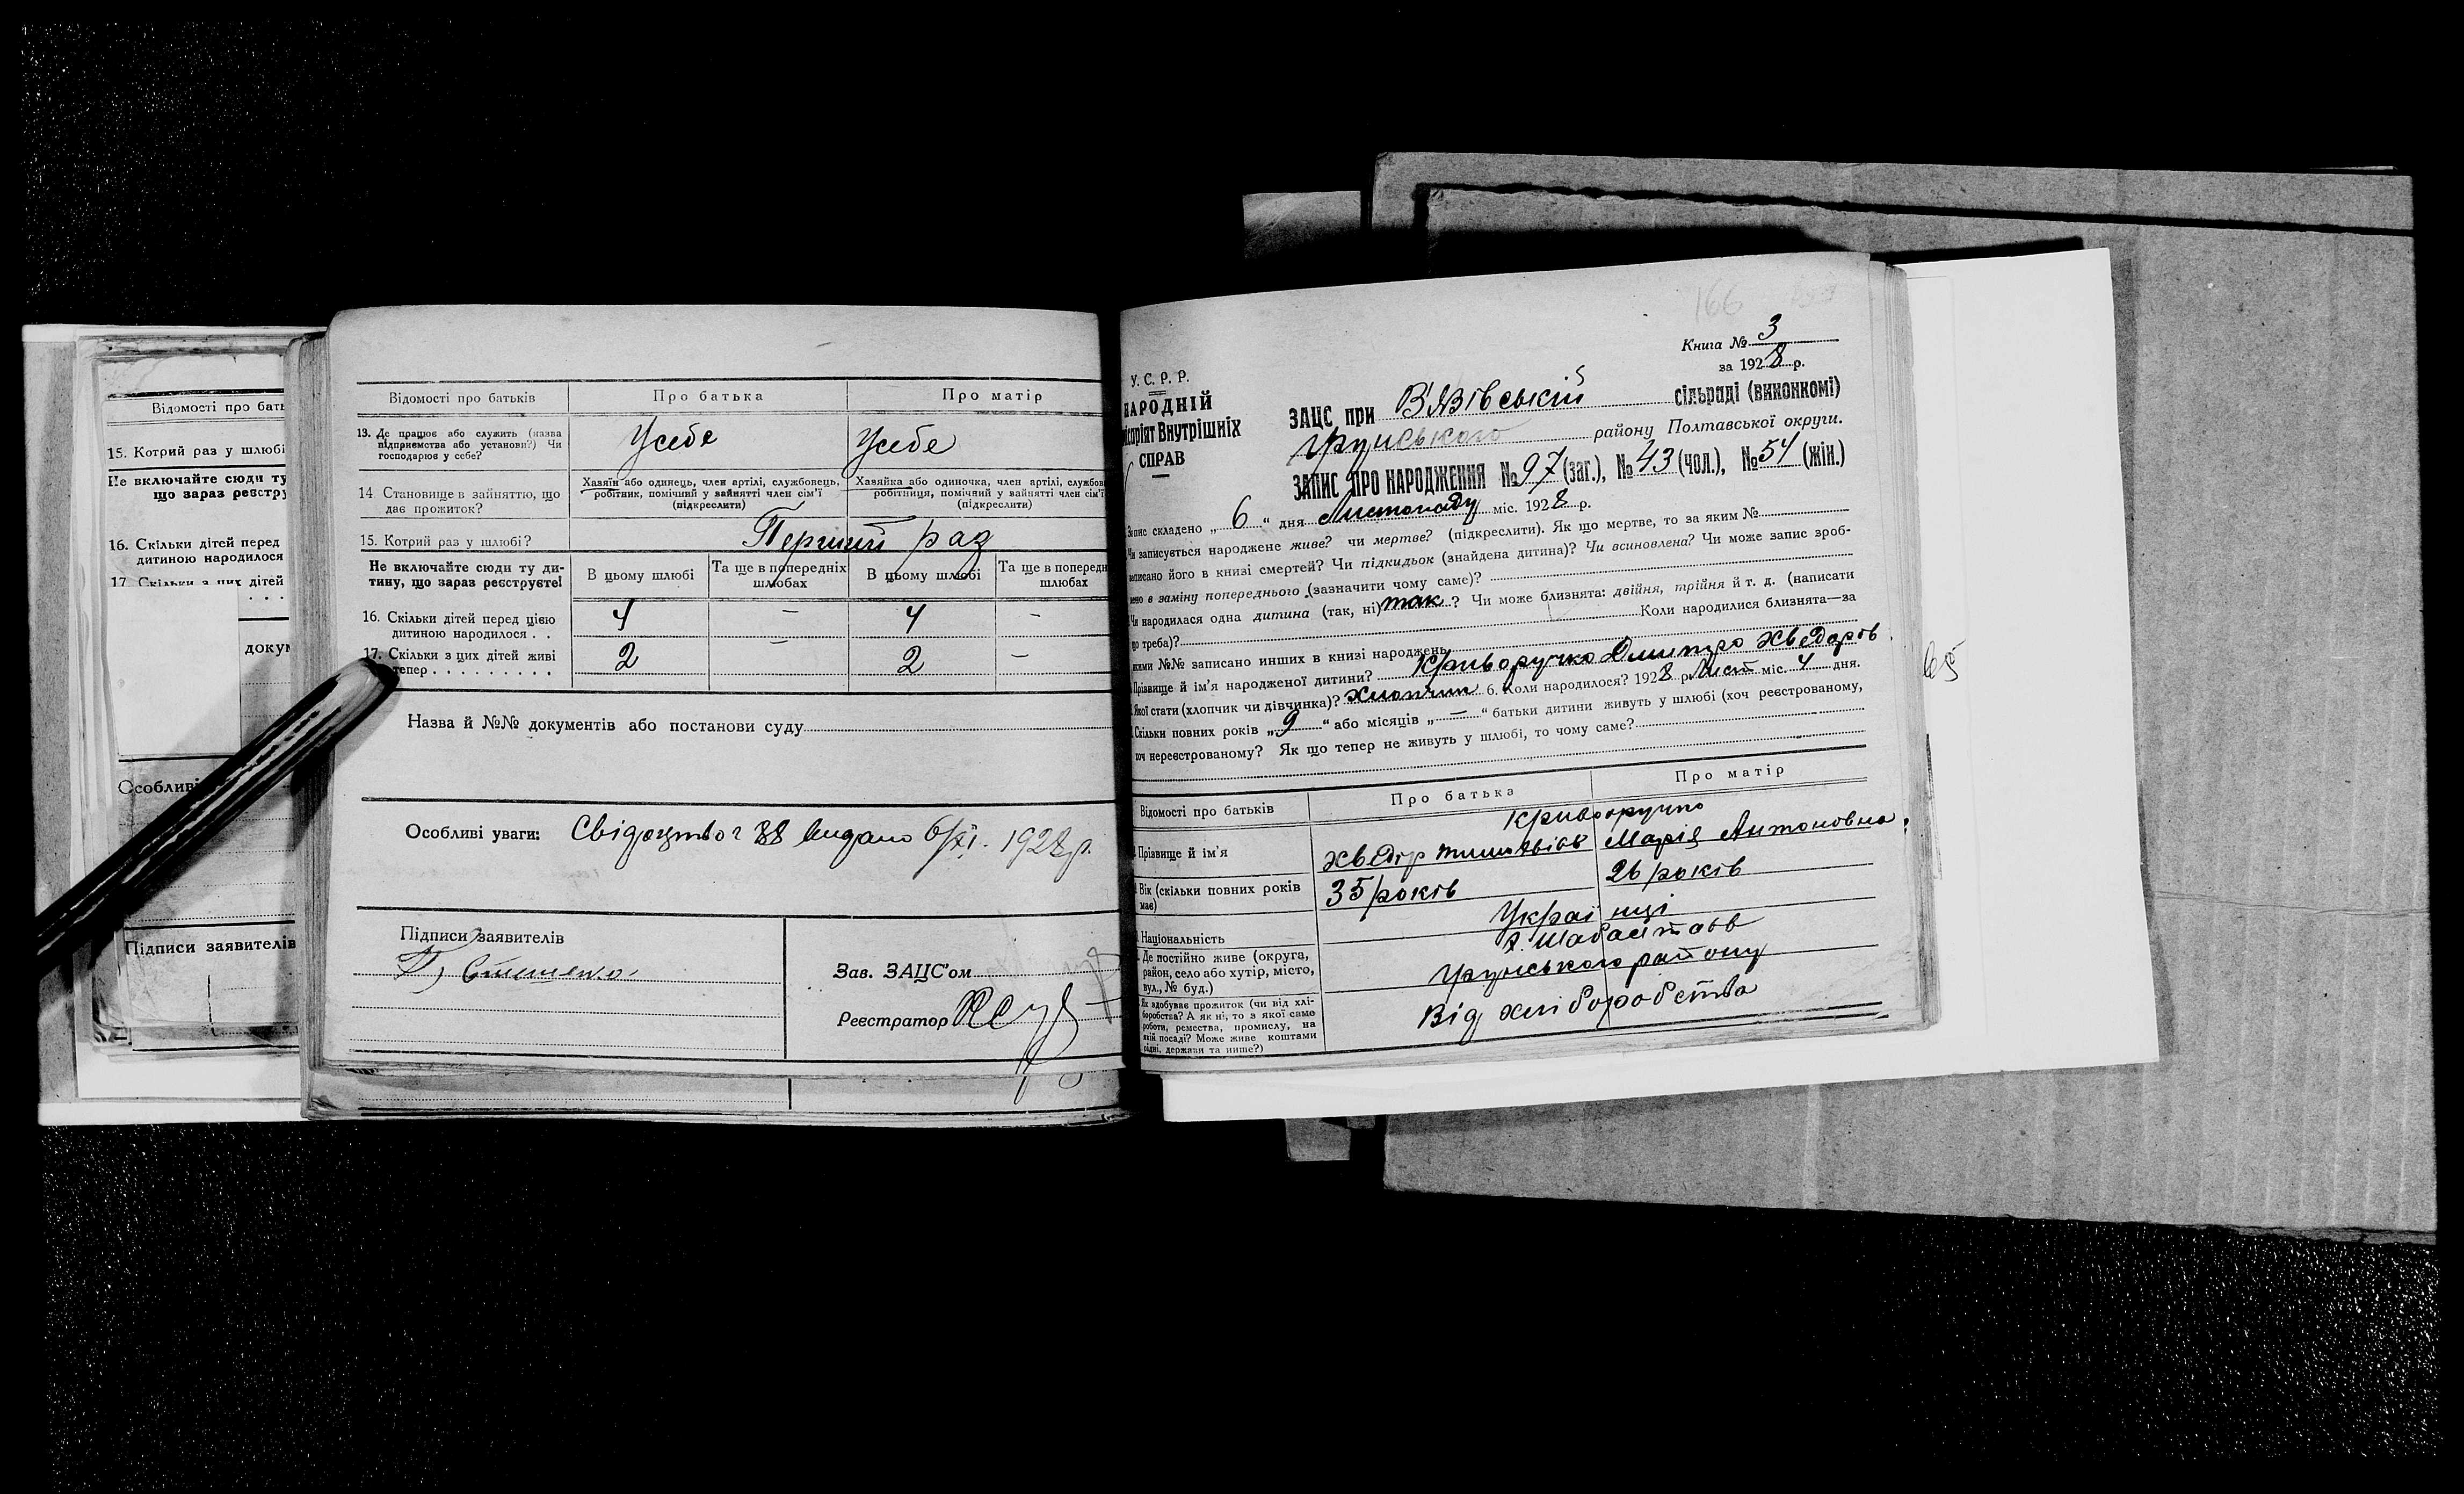 Відомості про бать
15. Котрий раз у шлюбі
Не включайте сюди ту
що зараз реєстру
16. Скільки дітей перед
дитиною народилося
17. Скільки з цих дітей
. . .
докум
Особливі
Підписи заявителів
Відомості про батьків
Про батька
Про матір
13. Де працює або служить (назва
підприємства або установи?) Чи
господарює у себе?
Усебе
Усебе
14. Становище в зайняттю, що
дає прожиток?
Хазяїн або одинець, член артілі, службовець,
робітник, помічний у вайнятті член сім'ї
(підкреслити)
Хазяйка або одиночка, член артілі, службов
робітниця, помічний у вайнятті член сім'ї
(підкреслити)
15. Котрий раз у шлюбі?
Перший раз
Не включайте сюди ту ди-
тину, що зараз реєструєте!
В цьому шлюбі
Та ще в попередніх
шлюбах
В цьому шлюбі
Та ще в попередн
шлюбах
16. Скільки дітей перед цією
дитиною народилося . .
4 – 4 –
17. Скільки з цих дітей живі
тепер . . . . . . . . .
2 – 2 –
Назва й №№ документів або постанови суду
Особливі уваги: Свідоцтво 88 видано 6/XI. 1928р.
Підписи заявителів
Зав. ЗАЦС'ом
Реєстратор
166
Книга № 3
за 1928 р.
У. С. Р. Р.
НАРОДНІЙ
місаріят Внутрішніх
СПРАВ
ЗАЦС при В'язівській сільраді (виконкомі)
Грунського району Полтавської округи.
ЗАПИС ПРО НАРОДЖЕННЯ № 97 (заг.), № 43 (чол.), № 54 (жін.)
Запис складено „ 6 “ дня Листопаду міс. 1928 р.
Чи записується народжене живе? чи мертве? (підкреслити). Як що мертве, то за яким №
записано його в книзі смертей? Чи підкидьок (знайдена дитина)? Чи всиновлена? Чи може запис зроб-
лено в заміну попереднього (зазначити чому саме)?
Чи народилася одна дитина (так, ні) так ? Чи може близнята: двійня, трійня й т. д. (написати
що треба)? Коли народилися близнята—за
якими №№ записано инших в книзі народжень
Прізвище й ім'я народженої дитини? Криворучко Дмитро Хведоров.
Якої стати (хлопчик чи дівчинка)? Хлопчик 6. Коли народилося? 1928 р. Лист міс. 4 дня.
Скільки повних років „ 9 “ або місяців „ — “ батьки дитини живуть у шлюбі (хоч реєстрованому,
хоч нереєстрованому? Як що тепер не живуть у шлюбі, то чому саме?
Відомості про батьків
Про батька
Про матір
Криворучко
Прізвище й ім'я
Хведір
Марія Антоновна.
Вік (скільки повних років
має)
35 років
26 років
Національність
Українці
Де постійно живе (округа,
район, село або хутір, місто,
вул., № буд.)
Грунського району
Як здобуває прожиток (чи від хлі-
боробства? А як ні, то з якої само
роботи, ремества, промислу, на
якій посаді? Може живе коштами
рідні, держави та инше?)
Від хліборобства